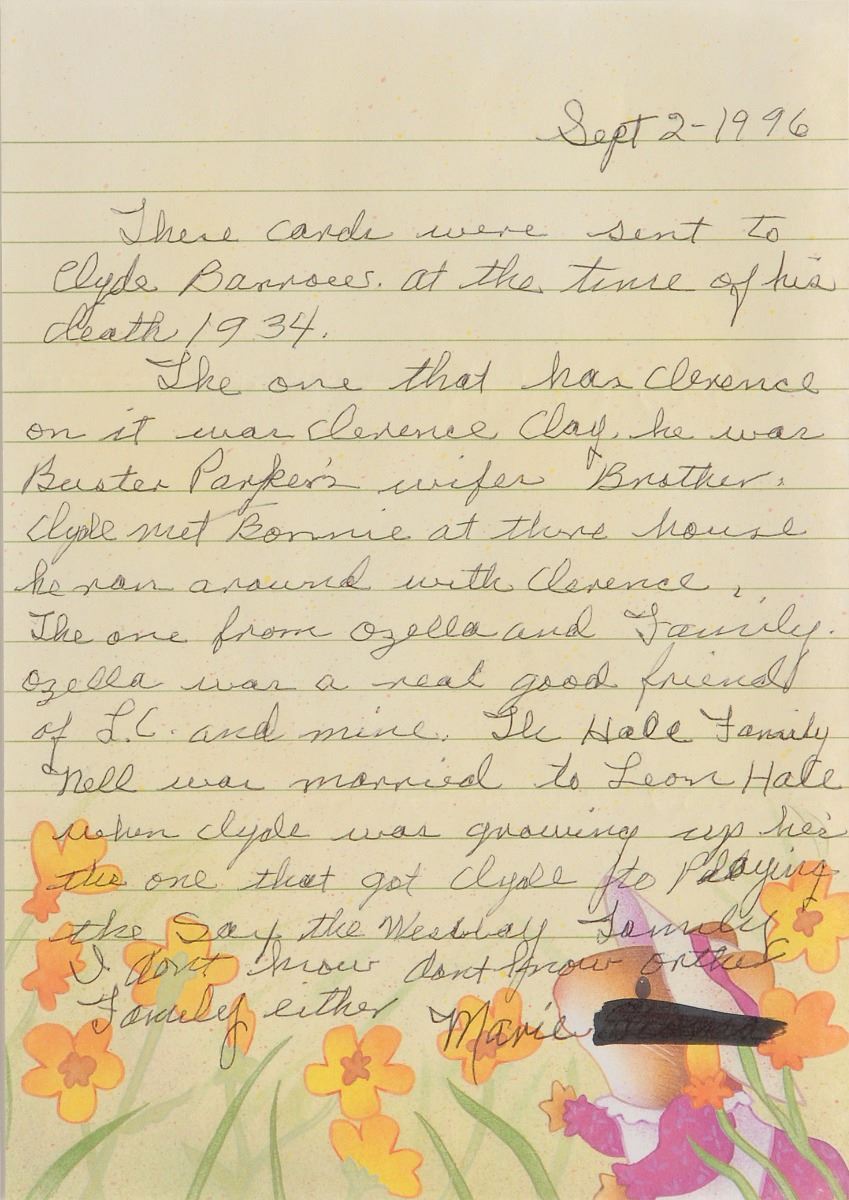 Sept 2-1996
These cards were sent to
Clyde Barrow. at the time of his
death 1934.
The one that has Clerence
on it was Clerence Clay. he was
Buster Parker's wifes Brother.
Clyde met Bonnie at there house
he ran around with Clerence.
The one from Ozella and Family.
Ozella was a real good friend
of L.C. and mine. The Hale Family
Nell was married to Leon Hale
when Clyde was growing up he's
the one that got Clyde to Playing
the Sax, the Family
I dont know dont know
Family either Marie